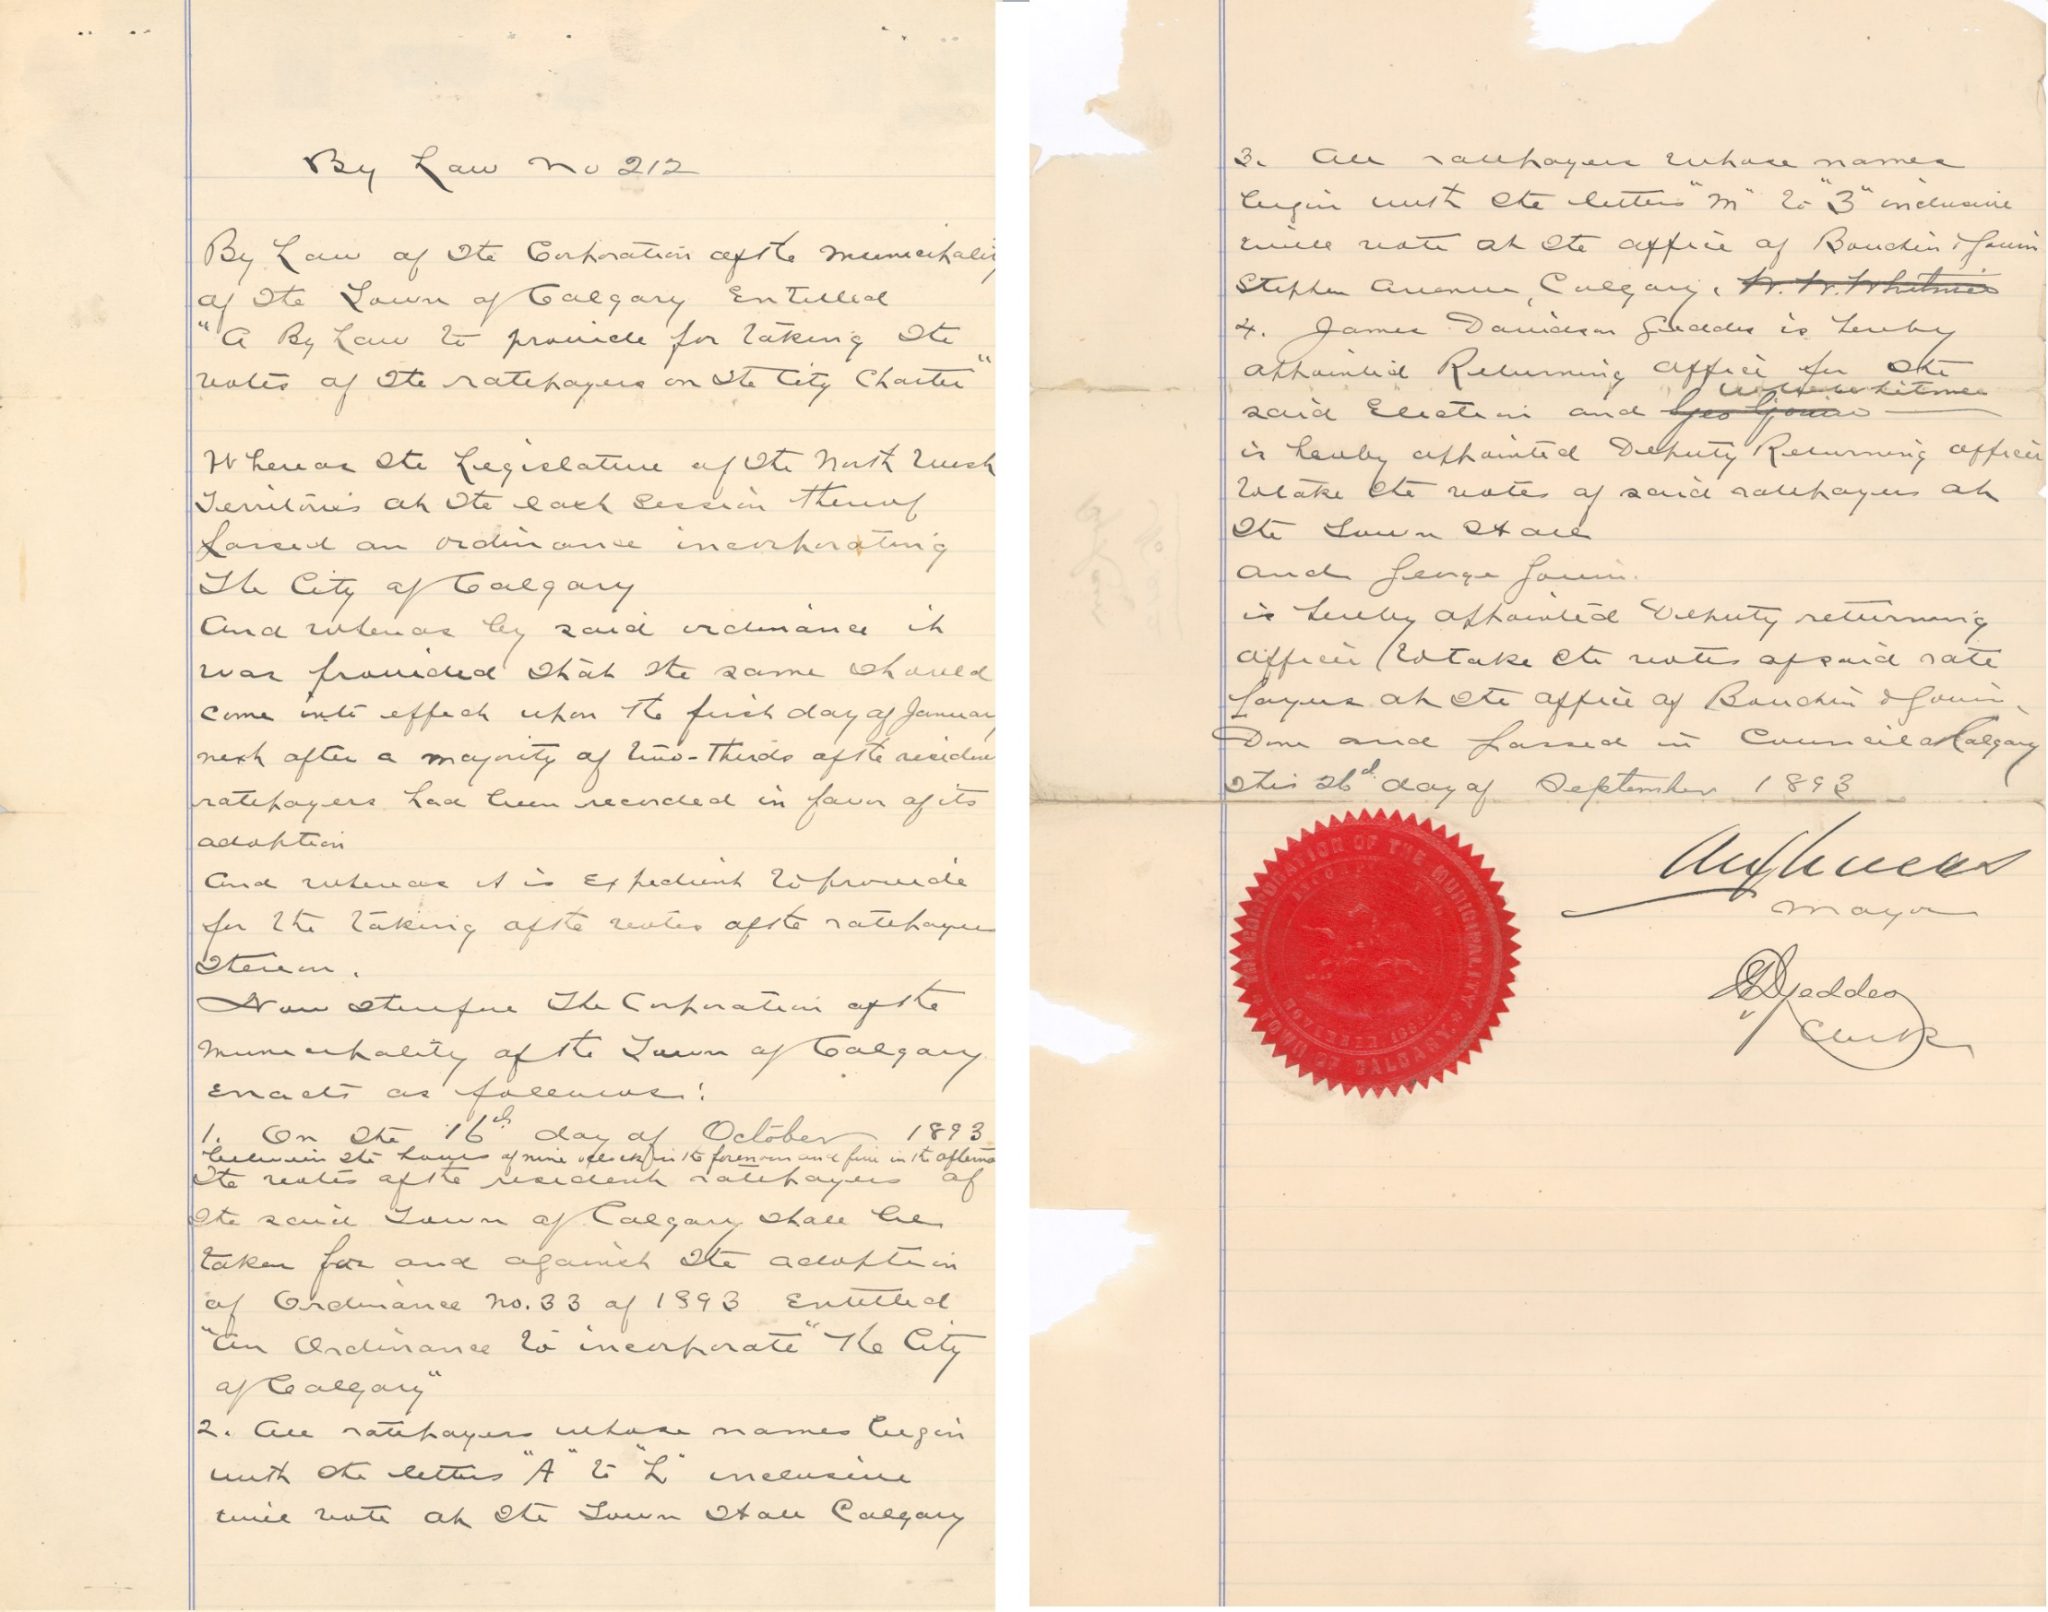 By Law No 212
By Law of the Corporation of the Municipality
of the Town of Calgary Entitled
"A By Law to provide for taking the
votes of the ratepayers on the City Charter"
Whereas the Legislature of the North West
Territories at the last Session thereof
passed an ordinance incorporating
The City of Calgary
And whereas by said ordinance it
was provided that the same should
come into effect upon the first day of January
next after a majority of two-thirds of the resident
ratepayers had been recorded in favor of its
adoption
And whereas it is expedient to provide
for the taking of the votes of the ratepayers
thereon.
Now therefore The Corporation of the
Municipality of the Town of Calgary
enacts as follows:
1. On the 16th day of October 1893
between the hours of nine o'clock in the forenoon and five in the afternoon
the votes of the resident ratepayers of
the said Town of Calgary shall be
taken for and against the adoption
of Ordinance No. 33 of 1893 Entitled
"An Ordinance to incorporate "The City
of Calgary"
2. All ratepayers whose names begin
with the letters "A" to "L" inclusive
will vote at the Town Hall Calgary
3. All ratepayers whose names
begin with the letters "M" to "Z" inclusive
will vote at the office of Bouchin & Gouin
Stephen Avenue, Calgary. W. W. Whitmee
4. James Davidson Geddes is hereby
appointed Returning officer for the
Whitmee
said Election and Geo Gouin
is hereby appointed Deputy Returning officer
to take the votes of said ratepayers at
the Town Hall
and George Gouin.
is hereby appointed Deputy returning
officer to take the votes of said rate
payers at the office of Bouchin & Gouin.
Done and passed in Council at Calgary
this 26d day of September 1893
THE CORPORATION OF THE MUNICIPALITY
TOWN OF CALGARY
NOVEMBER
Mayor
Geddes
Clerk